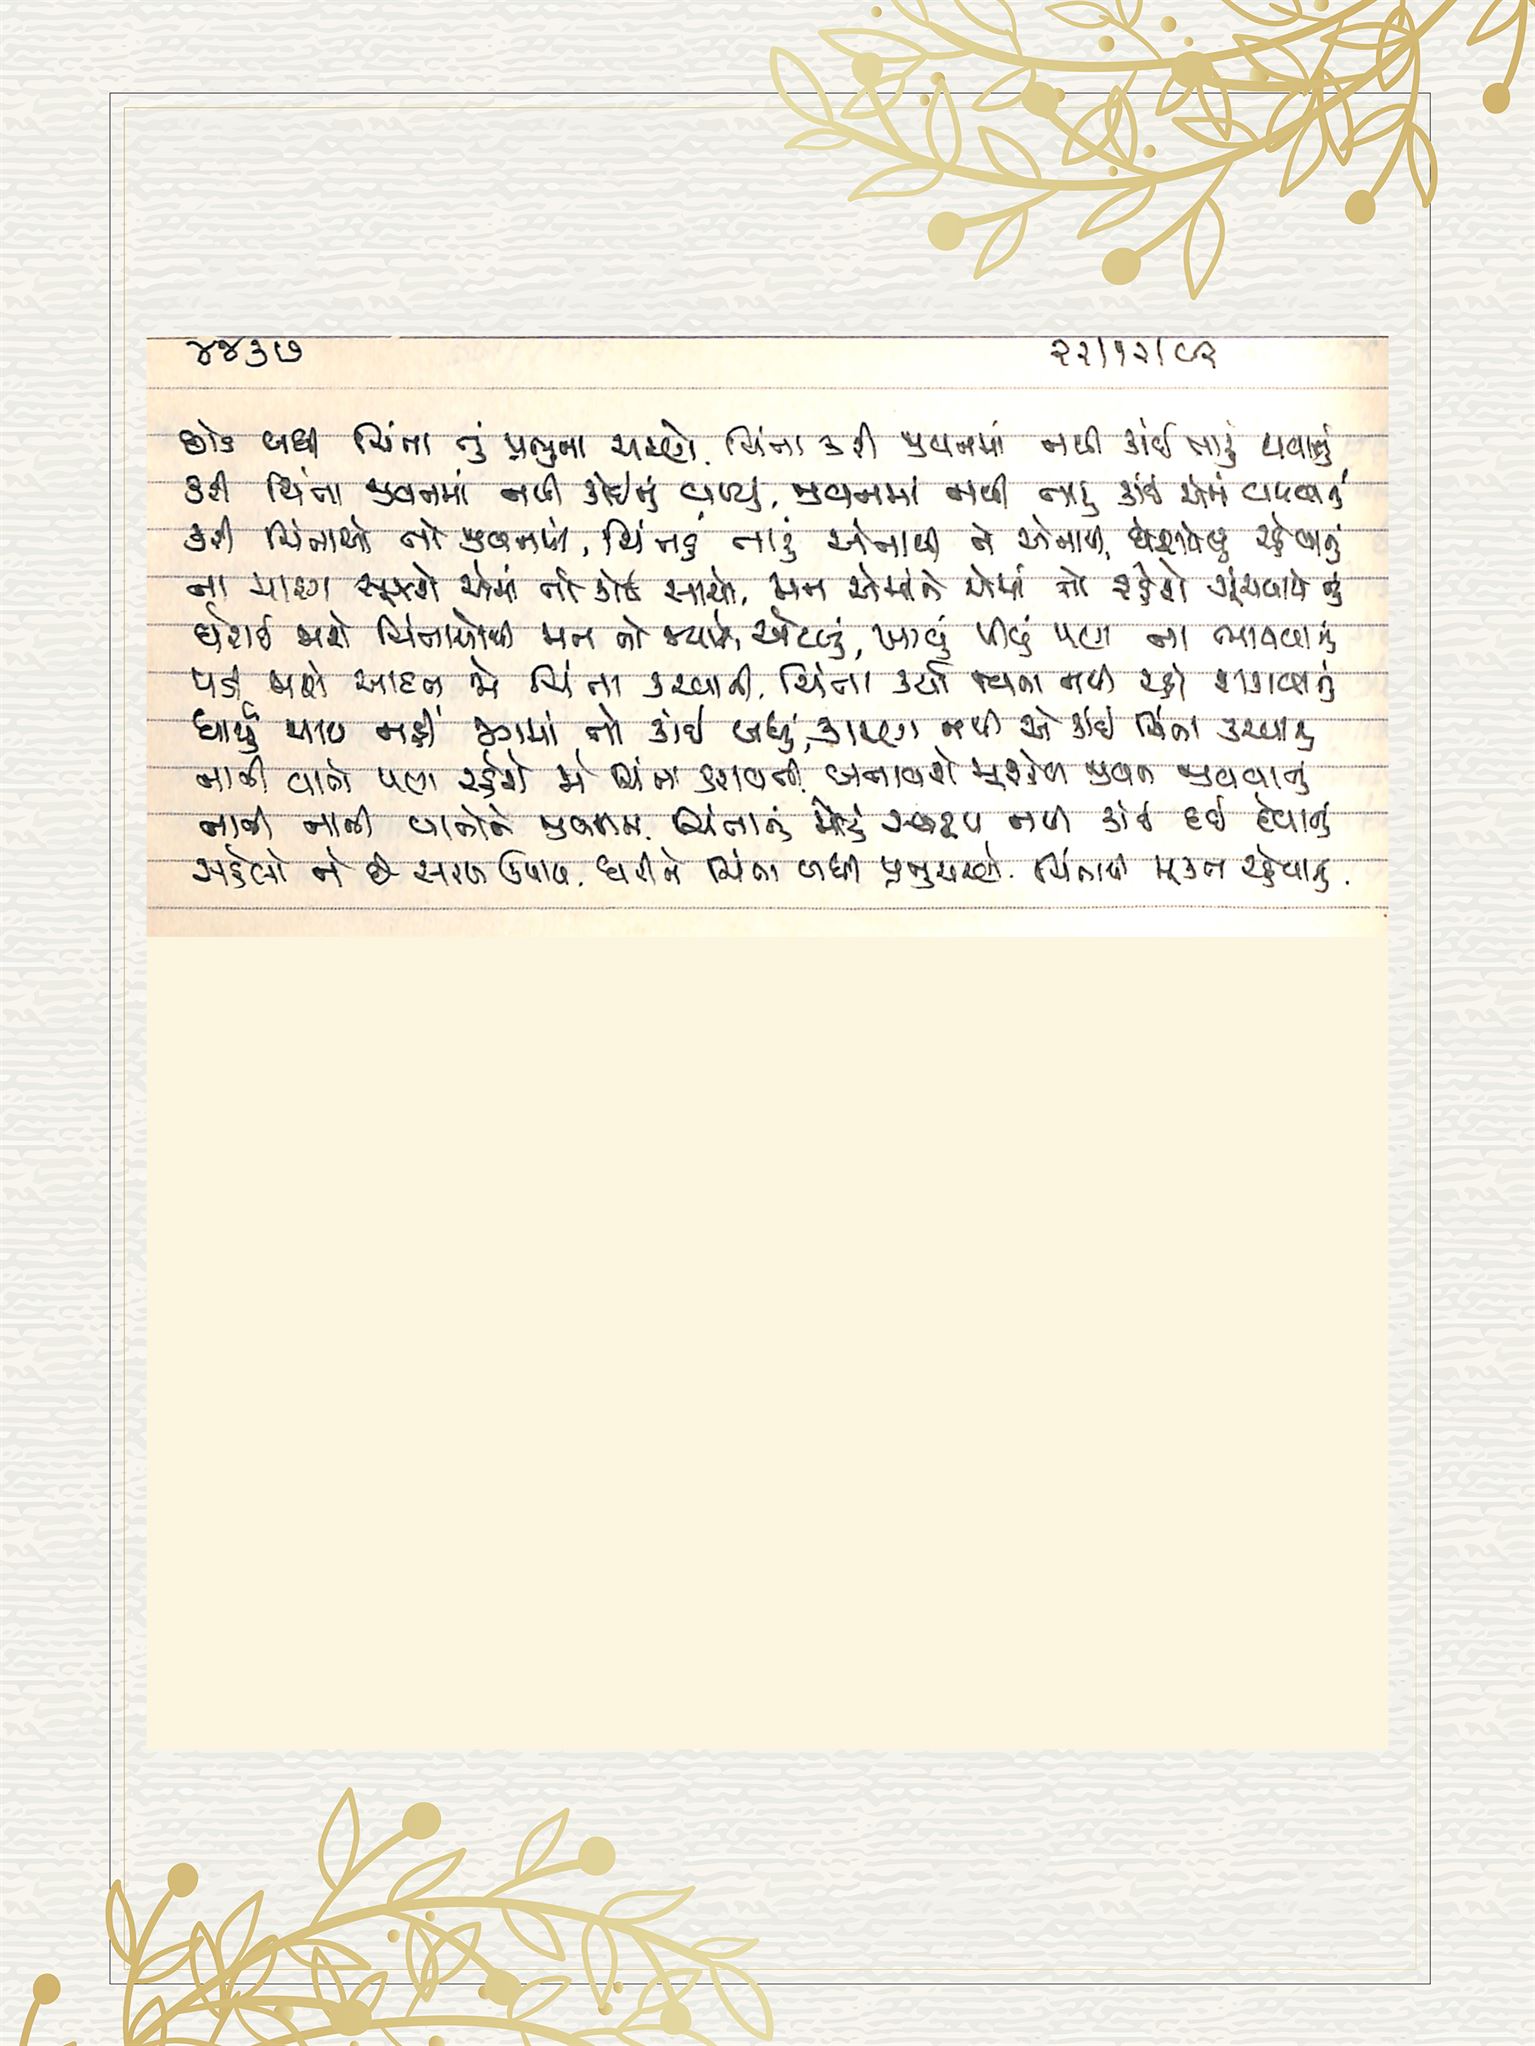 ૪૪૩૭ ૨૨/૧૨/૯૨
છોડ બધી ચિંતા તું પ્રભુના ચરણે, ચિંતા કરી જીવનમાં નથી કાંઈ તારું થવાનું
કરી ચિંતા જીવનમાં નથી કોઈનું વળ્યું, જીવનમાં નથી તારું કાંઈ એમાં વળવાનું
કરી ચિંતાઓ તો જીવનની, ચિત્તડું તારું એનાથી ને એનાથી, ઘેરાયેલું રહેવાનું
ના મારગ સૂઝશે એમાં તો કોઈ સાચો, મન એમાંને એમાં તો રહેશે ગૂંચવાયેલું
ઘેરાઈ જાશે ચિંતાઓથી મન તો જ્યારે, એટલું, ખાધું પીધું પણ ના ભાવવાનું
પડી જાશે આદત જે ચિંતા કરવાની, ચિંતા કર્યા વિના નથી રહી શકાવાનું
ધાર્યું થાય નહીં જગમાં તો કાંઈ બધું, કારણ નથી એ કાંઈ ચિંતા કરવાનું
નાની વાતો પણ રહેશે જે ચિંતા કરાવતી, બનાવશે મુશ્કેલ જીવન જીવવાનું
નાની નાની વાતોને જીવનમાં, ચિંતાનું મોટું સ્વરૂપ નથી કાંઈ દઈ દેવાનું
સહેલો ને છે સરળ ઉપાય, ધરીને ચિંતા બધી પ્રભુચરણે, ચિંતાથી મુક્ત રહેવાનું.